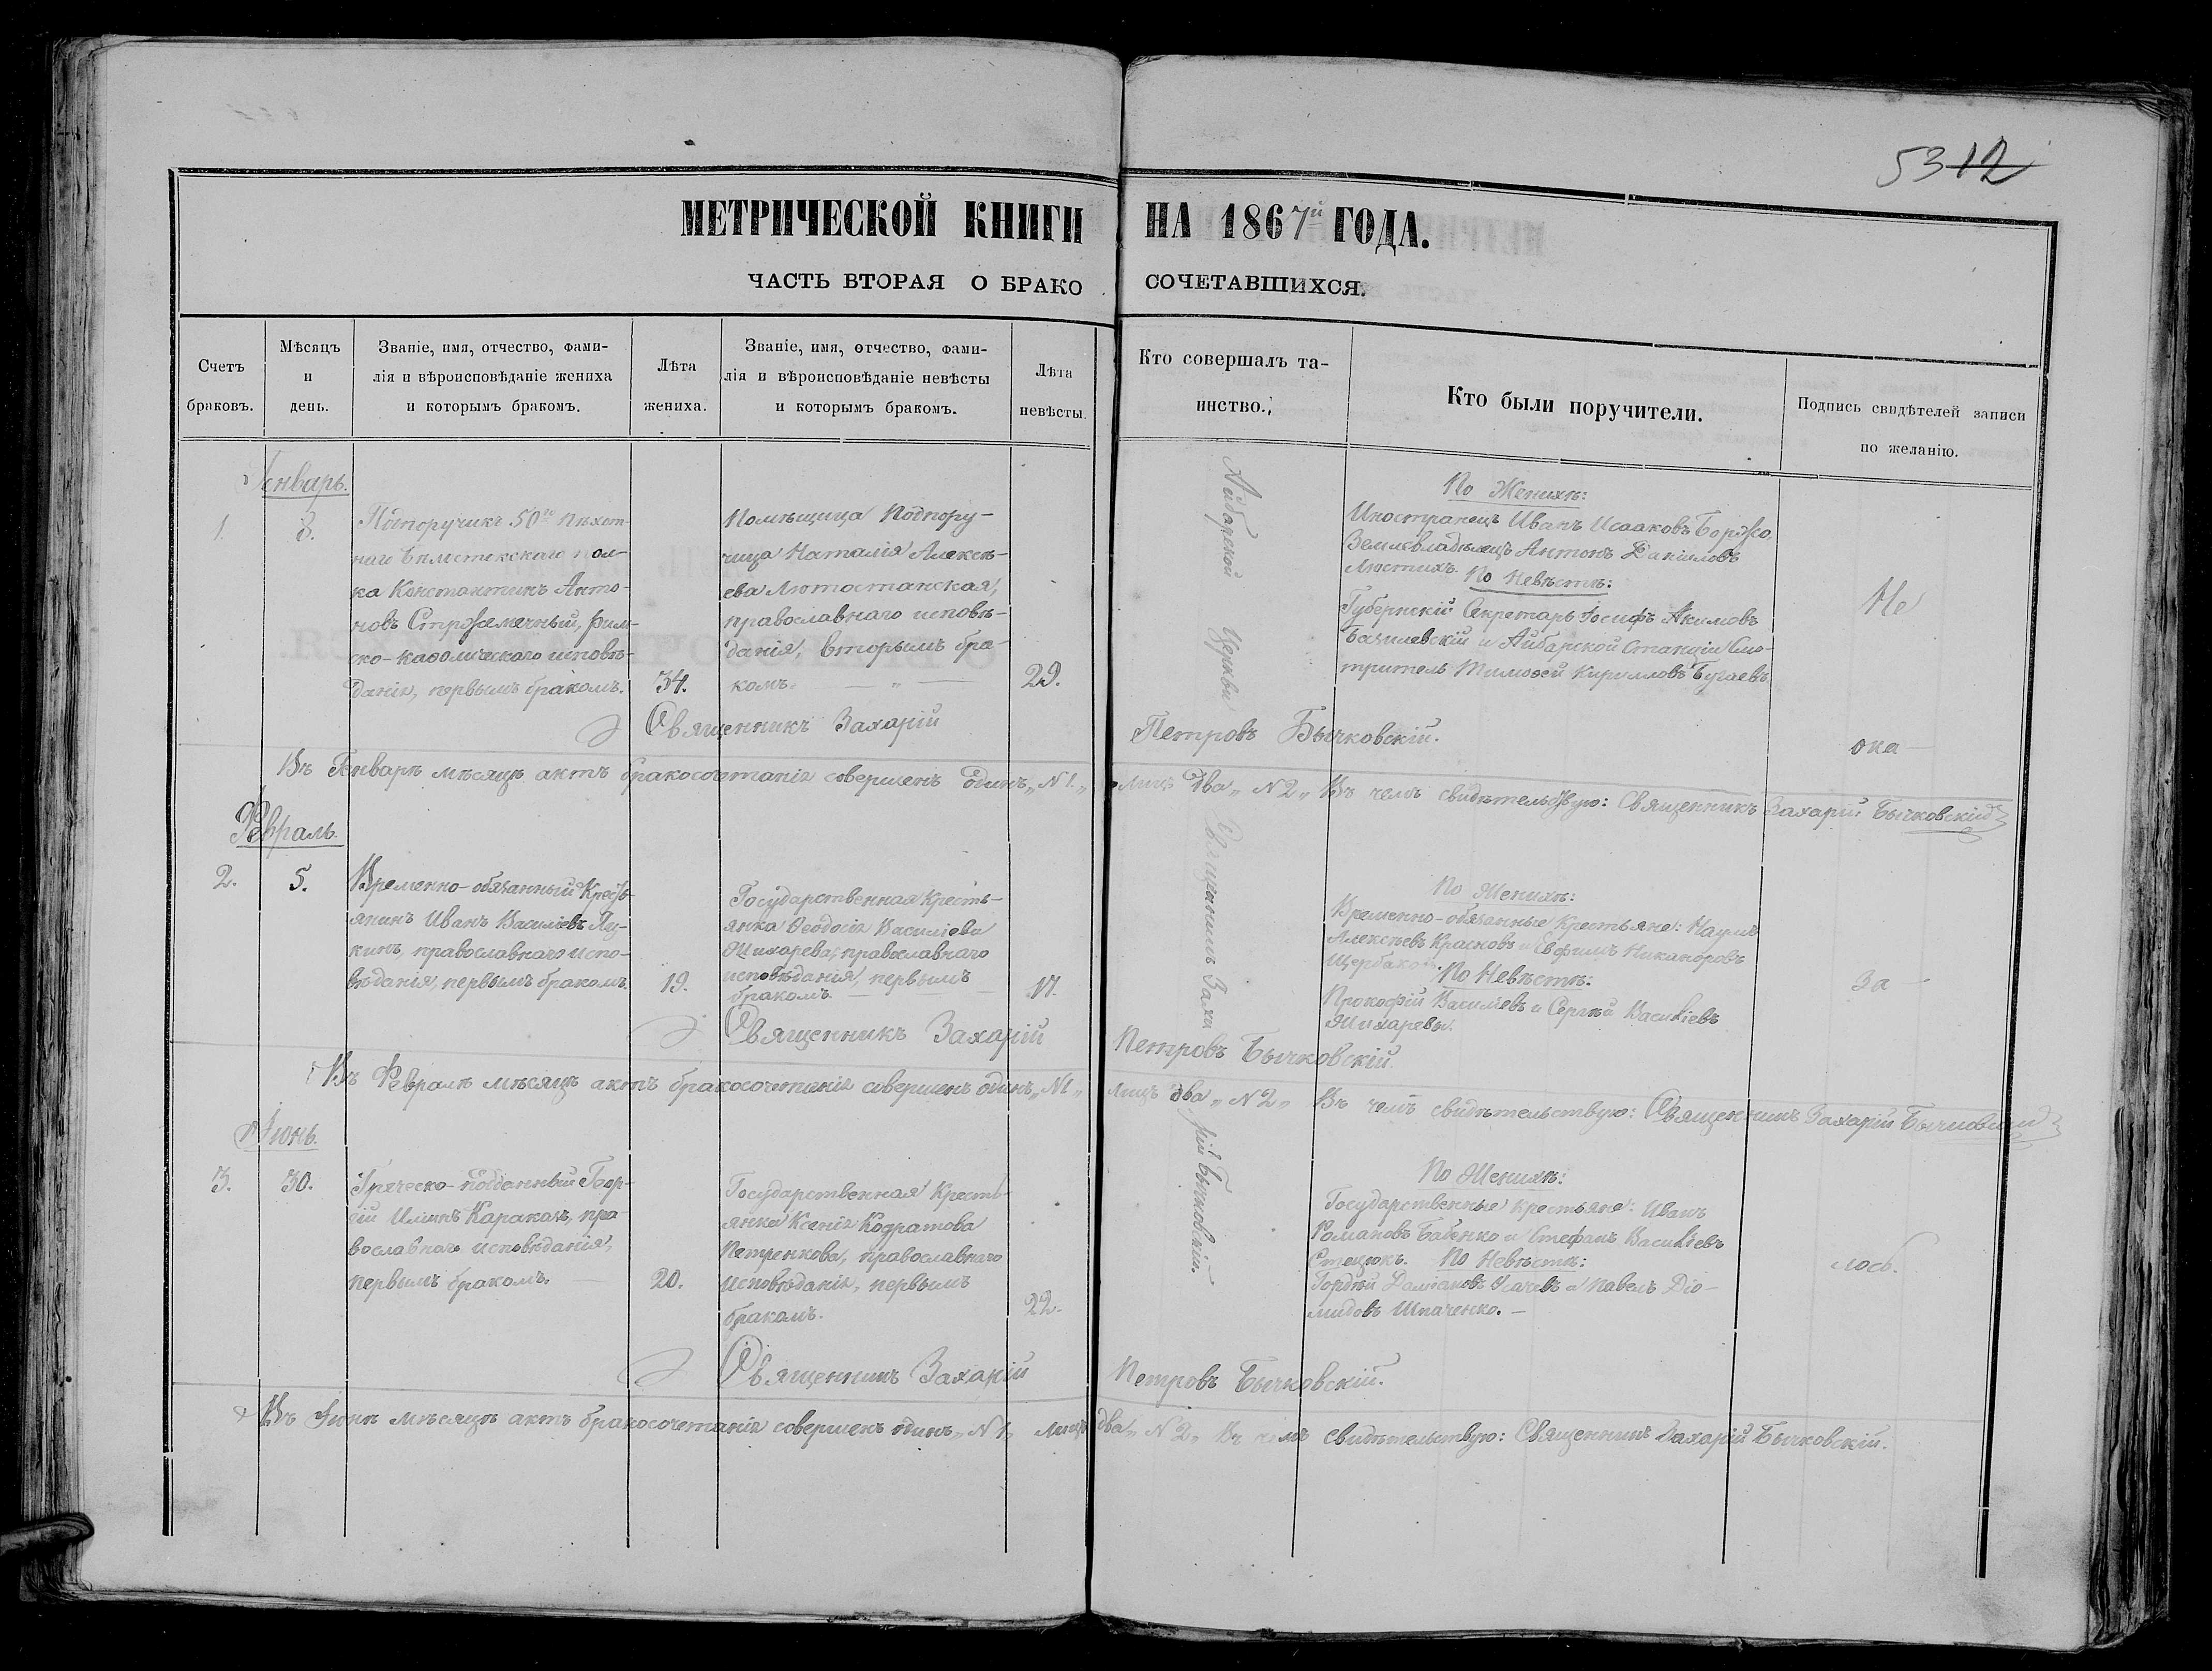 5312
МЕТРИЧЕСКОЙ КНИГИ НА 1867й ГОДА.
ЧАСТЬ ВТОРАЯ О БРАКОСОЧЕТАВШИХСЯ.
Счетъ
браковъ.
Мѣсяцъ
и
день.
Званіе, имя, отчество, фами-
лія и вѣроисповѣданіе жениха
и которымъ бракомъ.
Лѣта
жениха.
Званіе, имя, отчество, фами-
лія и вѣроисповѣданіе невѣсты
и которымъ бракомъ.
Лѣта
невѣсты.
Кто совершалъ та-
инство.
Кто были поручители.
Подпись свидѣтелей записи
по желанію.
Январь.
1.
8.
Подпоручикъ 50го пѣхот-
наго Бѣлостокскаго пол-
ка Константинъ Анто-
новъ Стржемечный, рим-
ско-каѳолическаго исповѣ-
данія, первымъ бракомъ.
34.
Помѣщица Подпору-
чица Наталія Алексѣ-
ева Лютостанская,
православнаго исповѣ-
данія, вторымъ бра-
комъ. — „ —
29.
По Женихѣ:
Иностранецъ Иванъ Исааковъ Боржо,
Землевладѣлецъ Антонъ Даніиловъ
Люстихъ. По Невѣстѣ:
Губернскій Секретарь Іосифъ Акимовъ
Базилевскій и Айбарской Станціи Смо-
тритель Тимоѳей Кирилловъ Бугаевъ.
Не
Священникъ Захарій Петровъ Бычковскій.
ока—
Въ Январѣ мѣсяцѣ актъ бракосочетанія совершенъ одинъ „N 1„ лицъ два „N 2„ Въ чемъ свидѣтельствую: Священникъ Захарій Бычковскій
Февраль.
2.
5.
Временно-обязанный Кресть-
янинъ Иванъ Василіевъ Лу-
кинъ, православнаго испо-
вѣданія, первымъ бракомъ.
19.
Государственная Кресть-
янка Ѳеодосія Василіева
Жихарева, православнаго
исповѣданія, первымъ
бракомъ. —
17.
По Женихѣ:
Временно-обязанные Крестьяне: Наумъ
Алексѣевъ Красновъ и Евфимъ Никаноровъ
Щербаковъ. По Невѣстѣ:
Прокофій Василіевъ и Сергѣй Василіевъ
Жихаревы.
за —
Священникъ Захарій Петровъ Бычковскій.
Въ Февралѣ мѣсяцѣ актъ бракосочетанія совершенъ одинъ „N 1„ лицъ два „N 2„ Въ чемъ свидѣтельствую: Священникъ Захарій Бычковскій
Іюнь.
3.
30.
Греческо-подданный Геор-
гій Ильинъ Каракашъ, пра-
вославнаго исповѣданія,
первымъ бракомъ. —
20.
Государственная Кресть-
янка Ксенія Кодратова
Петренкова, православнаго
исповѣданія, первымъ
бракомъ.
22.
Айбарской Церкви Священникъ Захарій Бычковскій.
По Женихѣ:
Государственные крестьяне: Иванъ
Романовъ Бабенко и Стефанъ Василіевъ
Стецюкъ. По Невѣстѣ:
Гордѣй Даміановъ Усачевъ и Павелъ Діо-
мидовъ Шпаченко. —
лось.
Священникъ Захарій Петровъ Бычковскій.
Въ Іюнѣ мѣсяцѣ актъ бракосочетанія совершенъ одинъ „N 1„ лицъ два „N 2„ Въ чемъ свидѣтельствую: Священникъ Захарій Бычковскій.